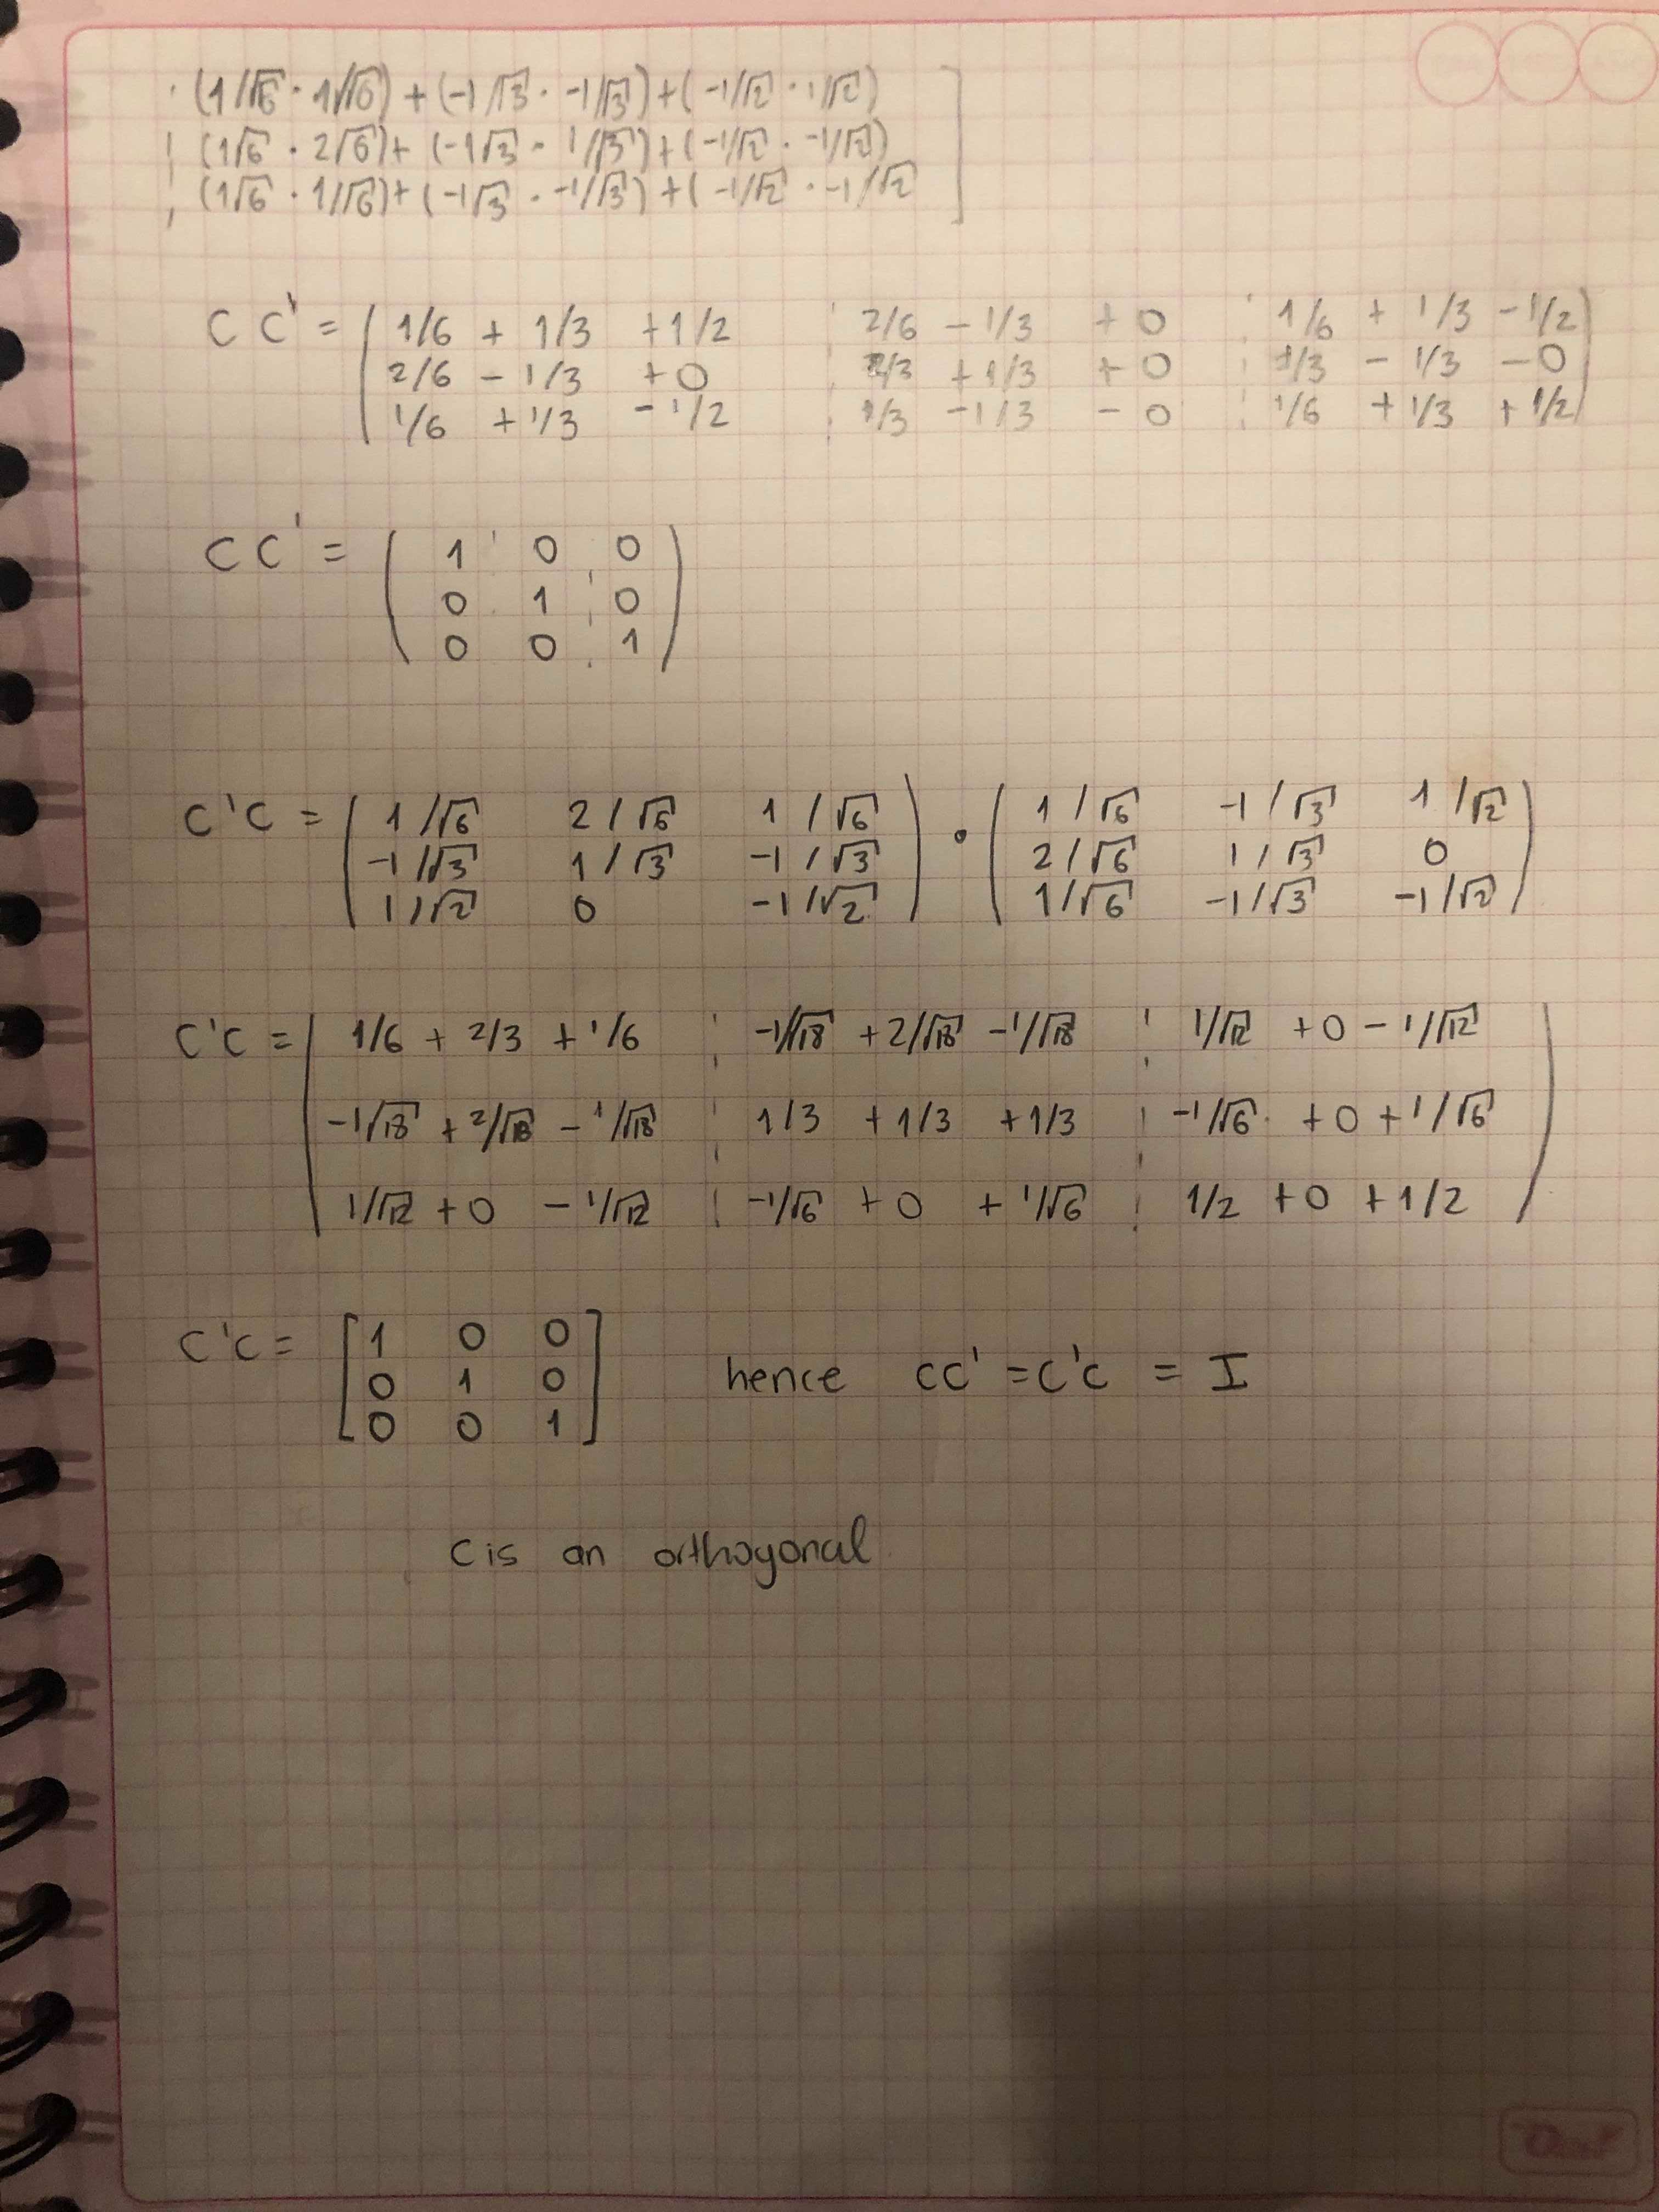 (1/√6 · 1√6) + (-1/√3 · -1/√3) + (-1/√2 · 1/√2)
(1√6 · 2√6) + (-1√3 · 1/√3) + (-1/√2 · -1/√2)
(1√6 · 1/√6) + (-1√3 · -1/√3) + (-1/√2 · -1/√2
CC' = 1/6 + 1/3 + 1/2 2/6 - 1/3 + 0 1/6 + 1/3 - 1/2
2/6 - 1/3 + 0 2/3 + 1/3 + 0 1/3 - 1/3 - 0
1/6 + 1/3 - 1/2 1/3 - 1/3 - 0 1/6 + 1/3 + 1/2
CC' = 1 0 0
0 1 0
0 0 1
C'C = 1/√6 2/√6 1/√6 · 1/√6 -1/√3 1/√2
-1/√3 1/√3 -1/√3 2/√6 1/√3 0
1/√2 0 -1/√2 1/√6 -1/√3 -1/√2
C'C = 1/6 + 2/3 + 1/6 -1/√18 + 2/√18 - 1/√18 1/√12 + 0 - 1/√12
-1/√18 + 2/√18 - 1/√18 1/3 + 1/3 + 1/3 -1/√6 + 0 + 1/√6
1/√12 + 0 - 1/√12 -1/√6 + 0 + 1/√6 1/2 + 0 + 1/2
C'C = 1 0 0
0 1 0 hence CC' = C'C = I
0 0 1
C is an orthogonal